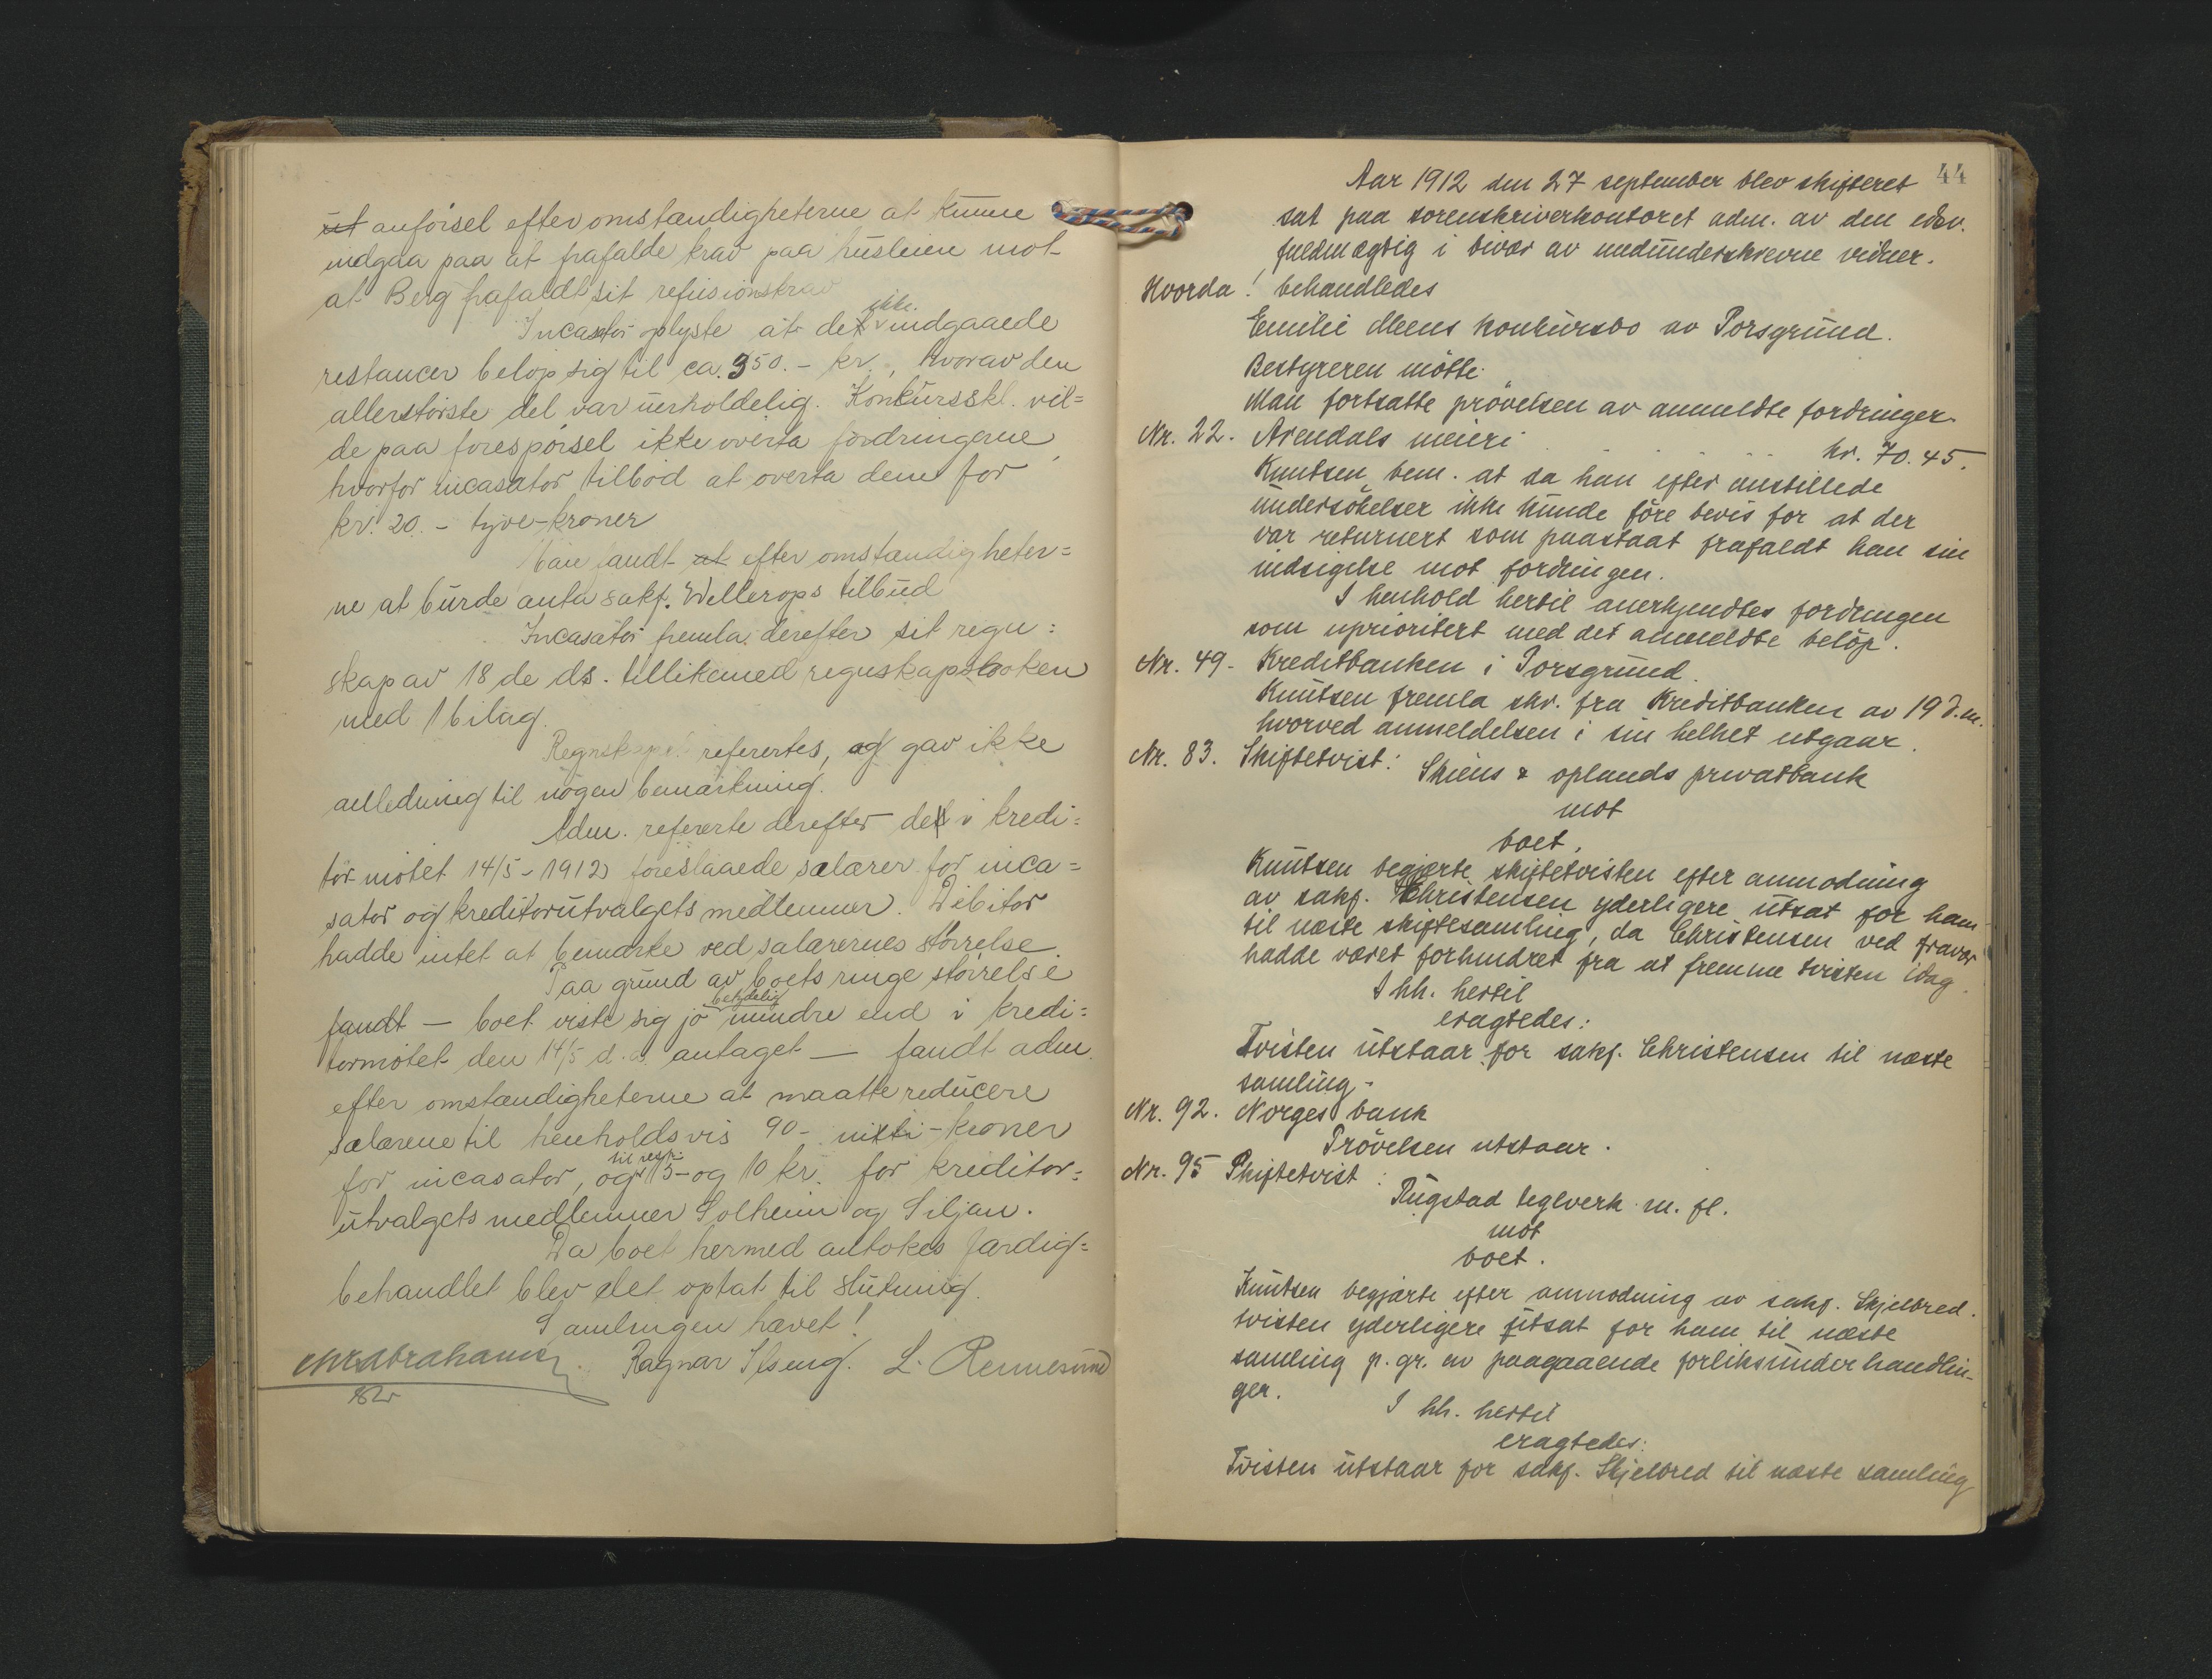 ut anförsel efter omstændigheterne at kunne
indgaa paa at frafalde krav paa husleien mot
at Berg frafaldt sit refusionskrav
Incasator oplyste at de ikke indgaaede
restancer beløp sig til ca. 350.- kr., hvorav den
allerstörste del var uerholdelig. Konkursskl. vil=
de paa forespörsel ikke overta fordringerne,
hvorfor incasator tilböd at overta dem for
kr. 20.- tyve-kroner
Man fandt at efter omstændigheter=
ne at burde anta sakf. Wellerops tilbud
Incasator fremla derefter sit regn=
skap av 18de ds. tillikemed regnskapsboken
med 1 bilag.
Regnskapet referertes, og gav ikke
anledning til nogen bemærkning.
Adm. refererte derefter de i kredi=
tormötet 14/5-1912 foreslaaede salærer for inca=
sator og kreditorutvalgets medlemmer. Debitor
hadde intet at bemærke ved salærernes störrelse
Paa grund av boets ringe störrelse
fandt — boet viste sig jo betydelig mindre end i kredi=
tormötet den 14/5 d.a. antaget — fandt adm.
efter omstændigheterne at maatte reducere
salærene til henholdsvis 90- nitti-kroner
for incasator, og til resp. 15- og 10 kr. for kreditor=
utvalgets medlemmer Solheim og Siljan.
Da boet hermed antokes færdig=
behandlet blev det optat til slutning.
Samlingen hævet!
Chr Abrahamsen. Ragnar Ilseng. L. Rennesund
44
Aar 1912 den 27 september blev skifteret
sat paa sorenskriverkontoret adm. av den edsv.
fuldmægtig i bivær av medunderskrevne vidner.
Hvorda! behandledes
Emilie Meens konkursbo av Porsgrund.
Bestyreren mötte.
Man fortsatte prövelsen av anmeldte fordringer.
Nr. 22. Arendals meieri kr. 70.45.
Knutsen bem. at da han efter anstillede
undersökelser ikke kunde före bevis for at der
var returnert som paastaat frafaldt han sin
indsigelse mot fordringen.
I henhold hertil anerkjendtes fordringen
som uprioritert med det anmeldte belöp.
Nr. 49- Kreditbanken i Porsgrund.
Knutsen fremla skr. fra Kreditbanken av 19 d.m.
hvorved anmeldelsen i sin helhet utgaar.
Nr. 83. Skiftetvist: Skiens & oplands privatbank
mot
boet.
Knutsen begjærte skiftetvisten efter anmodning
av sakf. Christensen yderligere utsat for ham
til næste skiftesamling, da Christensen ved fravær
hadde været forhindret fra at fremme tvisten idag.
I hh. hertil
eragtedes:
Tvisten utstaar for sakf. Christensen til næste
samling-
Nr. 92. Norges bank
Prövelsen utstaar.
Nr. 95 Skiftetvist:
Rugstad teglverk m. fl.
mot
boet.
Knutsen begjærte efter anmodning av sakf. Skjelbred.
tvisten yderligere utsat for ham til næste
samling p. gr. av paagaaende forliksunderhandlin-
ger.
I hh. hertil
eragtedes:
Tvisten utstaar for sakf. Skjelbred til næste samling